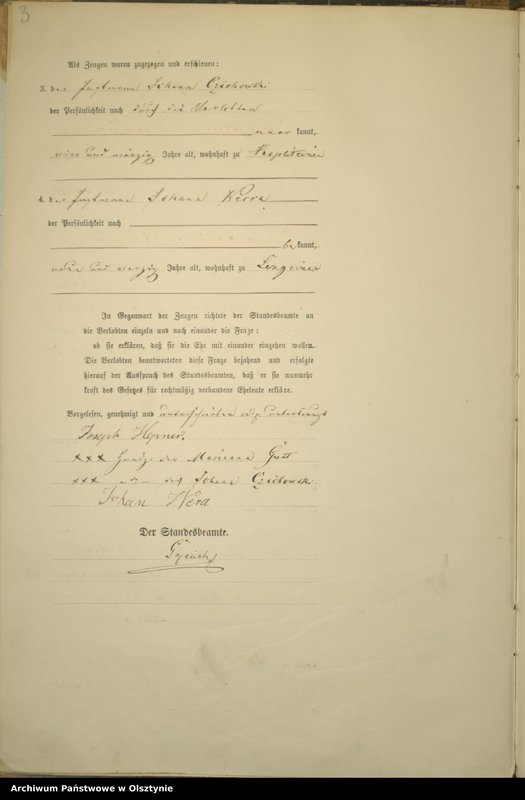 3
Als Zeugen waren zugezogen und erschienen:
3. der Instmann Johann Czichowski
der Persönlichkeit nach durch die Verlobten
aner kannt,
vier und vierzig Jahre alt, wohnhaft zu
4. der Instmann Johann
der Persönlichkeit nach
be kannt,
und vierzig Jahre alt, wohnhaft zu
In Gegenwart der Zeugen richtete der Standesbeamte an
die Verlobten einzeln und nach einander die Frage:
ob sie erklären, daß sie die Ehe mit einander eingehen wollen.
Die Verlobten beantworteten diese Frage bejahend und erfolgte
hierauf der Ausspruch des Standesbeamten, daß er sie nunmehr
kraft des Gesetzes für rechtmäßig verbundene Eheleute erkläre.
Vorgelesen, genehmigt und unterschrieben resp. unterkreuzt
Joseph Hepner.
xxx Handz. der Marianna
xxx des Johann Czichowski
Johan
Der Standesbeamte.
Archiwum Państwowe w Olsztynie